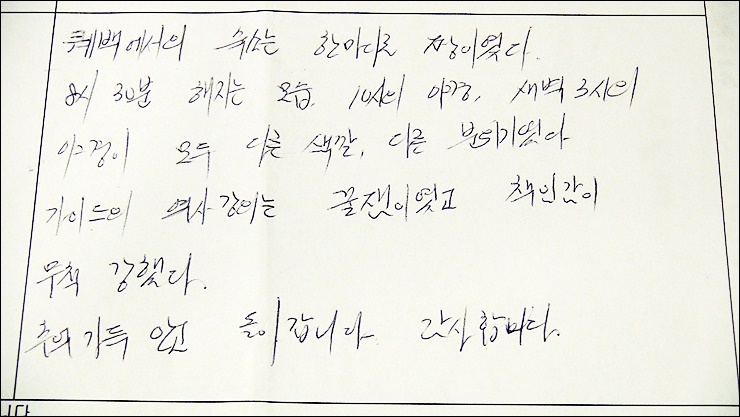 퀘백에서의 숙소는 한마디로 짱이였다.
8시 30분 해지는 모습, 10시의 야경, 새벽 3시의
야경이 모두 다른 색깔, 다른 분위기였다
가이드의 역사 강의는 꿀잼이였고 책임감이
무척 강했다.
추억 가득 안고 돌아갑니다 감사합니다.
니다